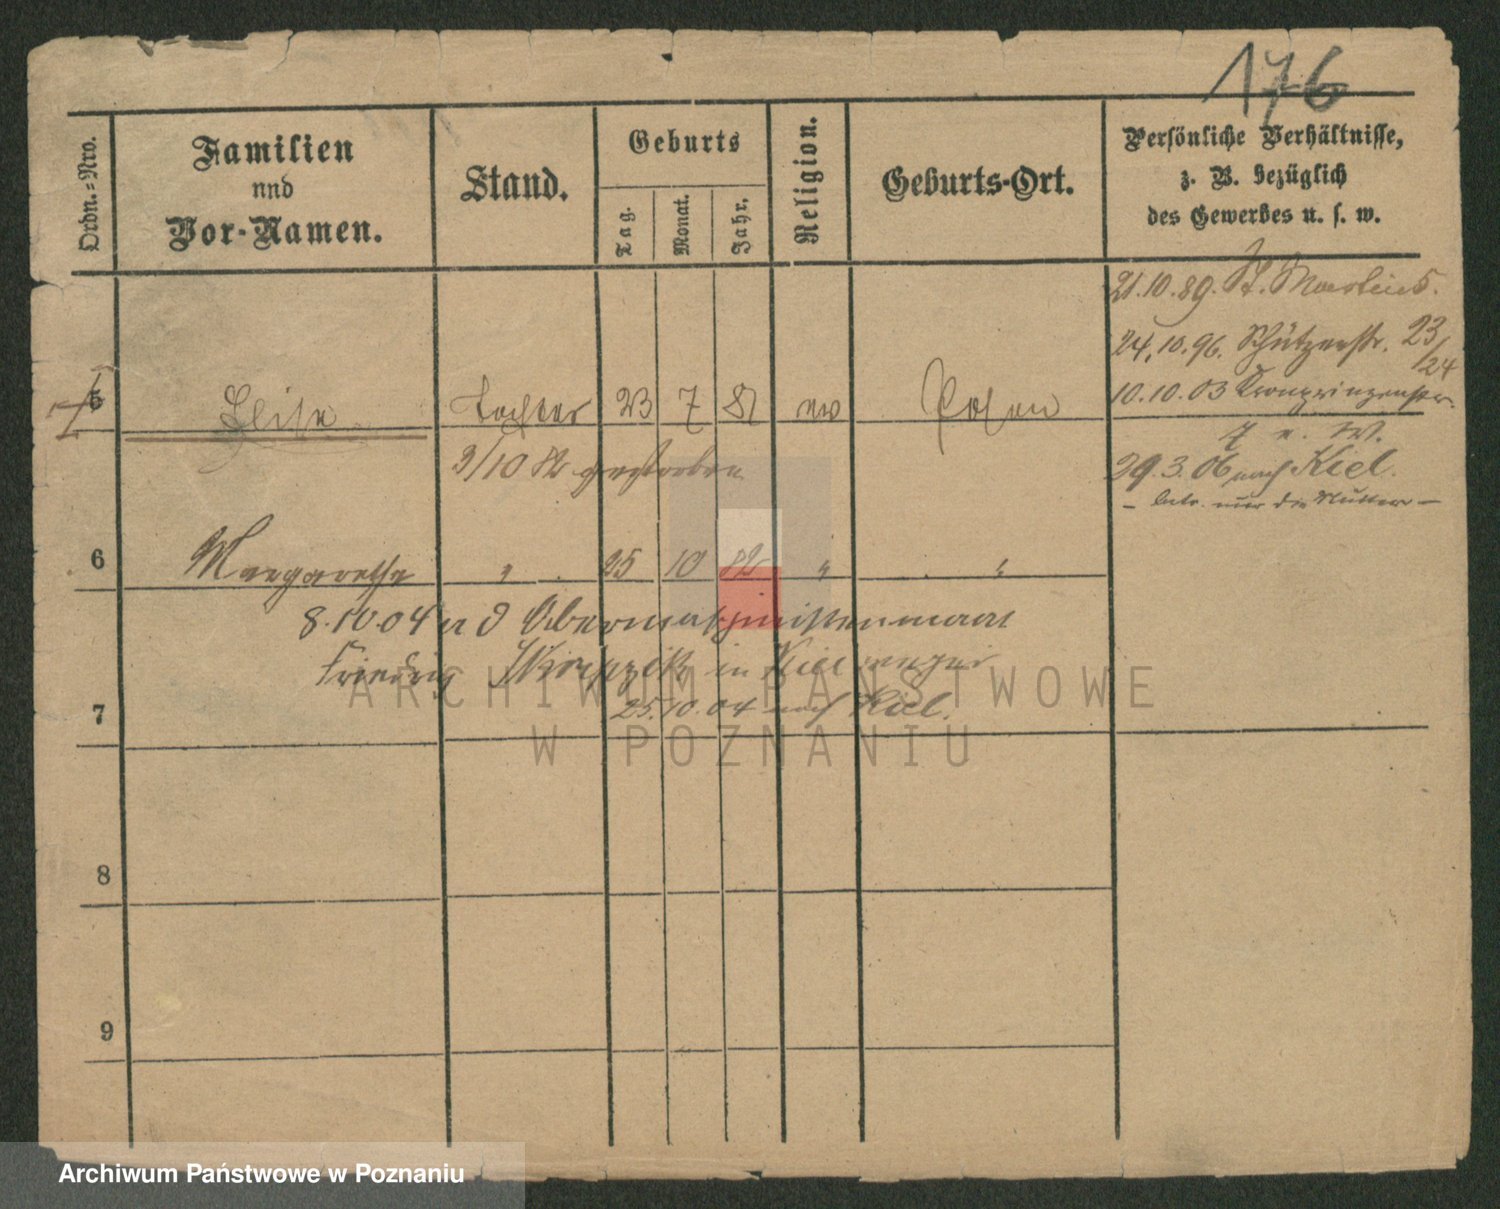 176
Ordn.=Nro.
Familien
und
Vor-Namen.
Stand.
Geburts
Tag.
Monat.
Jahr.
Religion.
Geburts-Ort.
Persönliche Verhältnisse,
z. B. bezüglich
des Gewerbes u. s. w.
21.10.89. St. Martin 5.
24.10.96. Schützenstr. 23/24
10.10.03 Kronprinzenstr.
5 Tochter 23 7 81 ev Posen
3/10 82 gestorben
29.3.06 nach Kiel.
nur die Mutter
6 Margarethe " 25 10 82 " "
8.10.04 Obermaschinistenmaat
Friedrich in Kiel
25.10.04 nach Kiel.
7
8
9
ARCHIWUM PAŃSTWOWE
W POZNANIU
Archiwum Państwowe w Poznaniu